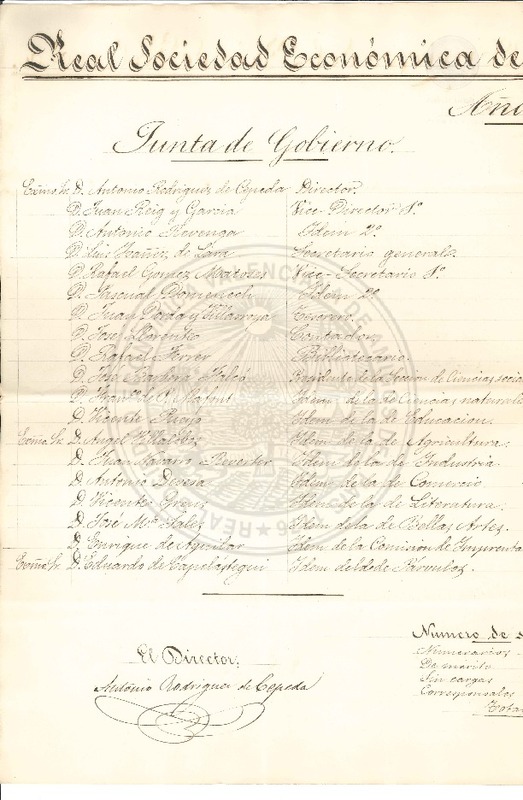 Real Sociedad Económica de
Año
Junta de Gobierno.
Excmo. Sr. D. Antonio Rodriguez de Cepeda Director.
D. Juan Reig y Garcia Vice-Director 1º
D. Antonio Revenga Idem 2º
D. Luis Ibañez de Lara Secretario general.
D. Rafael Gomez Vice-Secretario 1º
D. Pascual Domenech Idem 2º
D. Juan y Villarroya Tesorero.
D. José Llorente Contador.
D. Rafael Ferrer Bibliotecario.
D. José Presidente de la Seccion de Ciencias social
D. Franco. de P. Idem de la de Ciencias natural
D. Vicente Idem de la de Educacion.
Excmo. Sr. D. Angel Villalobos Idem de la de Agricultura.
D. Juan Navarro Reverter Idem de la de Industria.
D. Antonio Idem de la de Comercio
D. Vicente Idem de la de Literatura.
D. José Mª Sales Idem de la de Bellas Artes.
D. Enrique de Aguilar Idem de la Comision de Imprenta
Excmo. Sr. D. Eduardo de Capelastegui Idem de Párvulos.
El Director:
Antonio Rodriguez de Cepeda
Numero de s
Numerarios
De merito
Sin cargas
Corresponsales
Tota